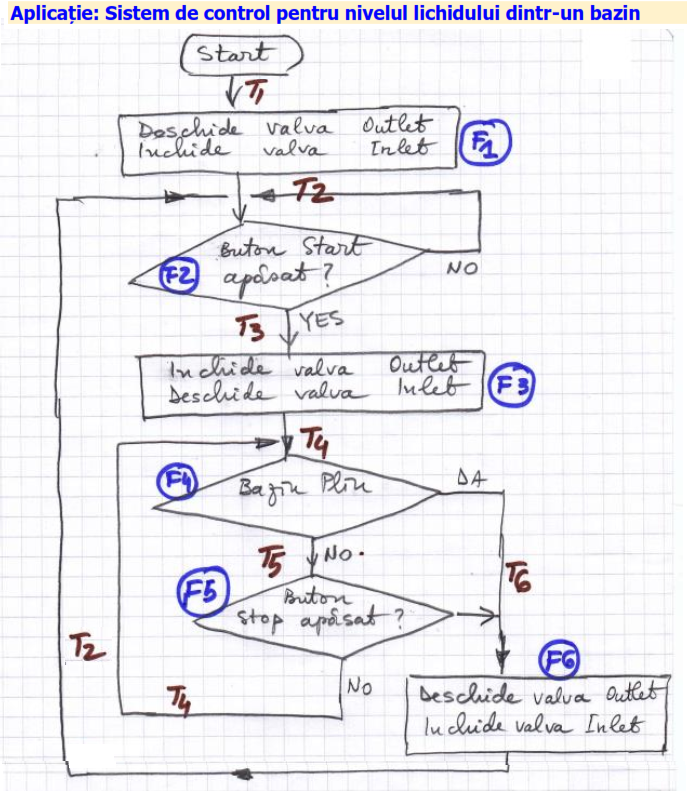 Aplicație: Sistem de control pentru nivelul lichidului dintr-un bazin
Start
T1
Deschide valva Outlet
Inchide valva Inlet
F1
T2
Buton Start
apăsat?
F2
NO
T3
YES
Inchide valva Outlet
Deschide valva Inlet
F3
T4
F4
Bazin Plin
DA
T5
NO.
T6
F5
Buton
Stop apăsat?
T2
F6
T4
NO
Deschide valva Outlet
Inchide valva Inlet